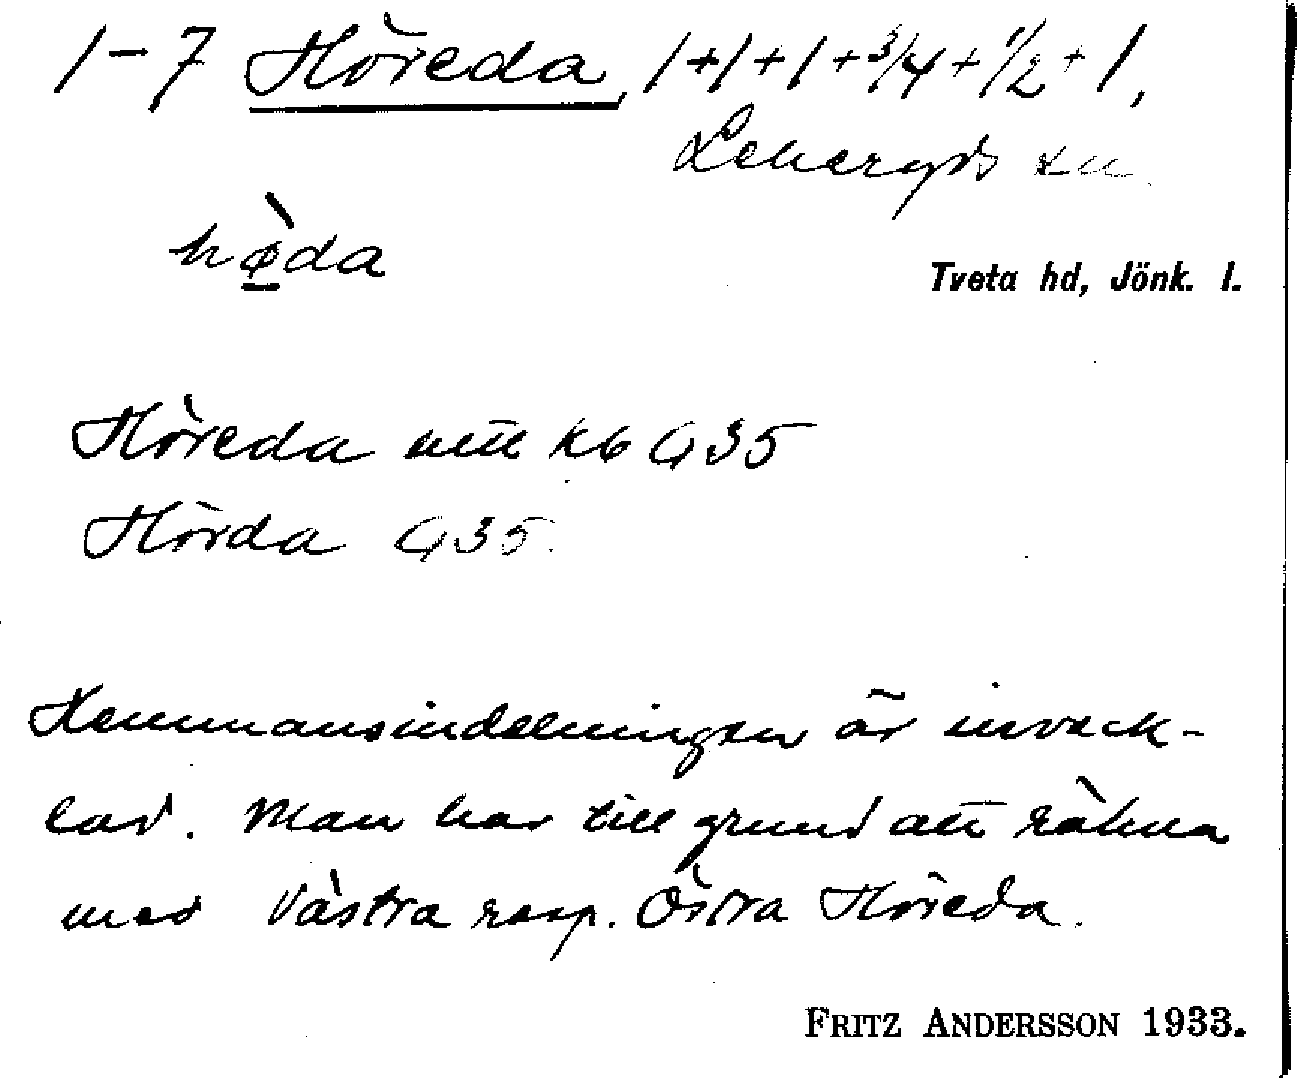 1-7 Höreda, 1+1+1+3/4+1/2+1,
Lekeryds sn
hø̱̀da
Tveta hd, Jönk. l.
Höreda mtl kb G35
Hörda G35.
Hemmansindelningen är inveck-
lad. Man har till grund att räkna
med Västra resp. Östra Höreda.
FRITZ ANDERSSON 1933.